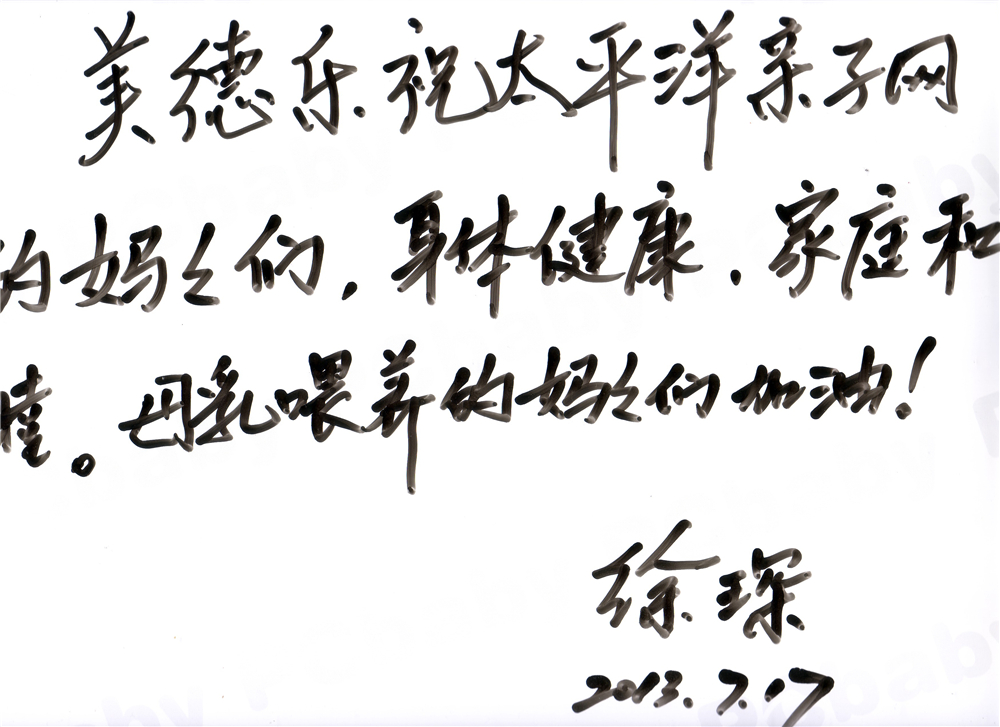 美德乐祝太平洋亲子网
的妈々们，身体健康，家庭和
睦。母乳喂养的妈々们加油！
徐琛
2013.7.17